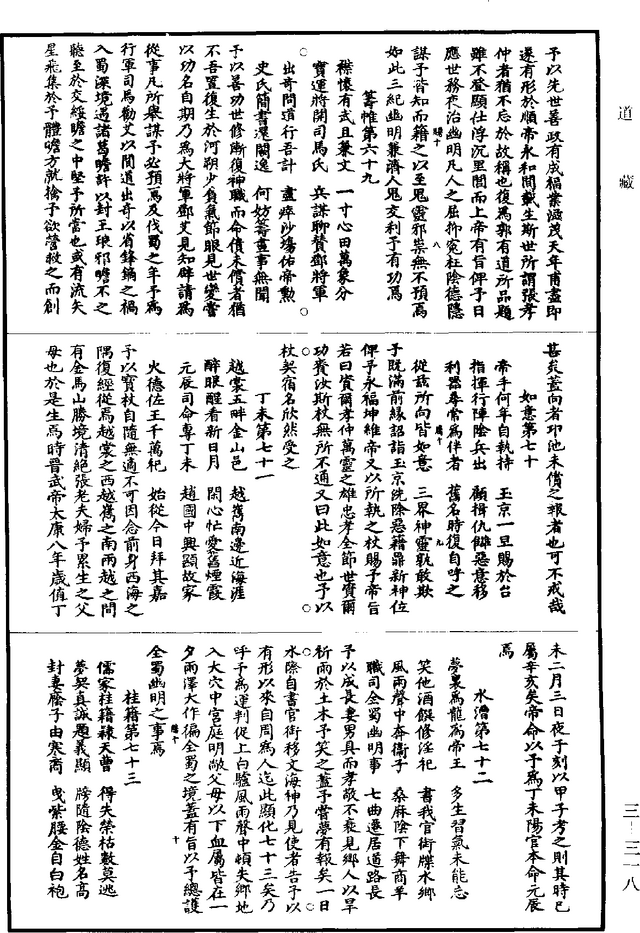 道藏
予以先世善政有成福業滋茂天年甫盡即
遂有形於順帝永和間載生斯世所謂張孝
仲者猶不忘於故稱也復爲郭有道所品題
雖不登顯仕浮沉里閭而上帝有旨俾予日
應世務夜治幽明凡人之屈抑寃枉陰德隱
謀予皆知而籍之以至鬼靈邪祟無不預焉
如此三紀幽明兼濟人鬼交利予有功焉
籌帷第六十九
襟懷有武且兼文　一寸心田萬象分
寶運將開司馬氏　兵謀聊贊鄧將軍
出奇間道行吾計　盡瘁沙場佑帝勲
史氏簡書還闕逸　何妨籌畫事無聞
予以善功世修漸復神職而命債未償者猶
不吾置復生於河朔少負氣節眼見世變當
以功名自期乃爲大將軍鄧艾見知辟請爲
從事凡所舉謀予必預焉及伐蜀之年予爲
行軍司馬勸艾以間道出奇以省鋒鏑之禍
入蜀深境遇諸葛瞻許以封王琅邪瞻不之
聽至於交綏瞻之中堅予所當也或有流矢
星飛集於予體瞻方就擒予欲營救之而創
甚矣蓋向者印池未償之報者也可不戒哉
如意第七十
帝手何年自執持　玉京一旦賜於台
指揮行陣陰兵出　顧揖仇讎惡意移
利器尋常爲伴者　舊名時復自呼之
從兹所向皆如意　三界神靈孰敢欺
予既滿前緣詔詣玉京洗除惡籍鼎新神位
俾予永福坤維帝又以所執之杖賜予帝旨
若曰賁爾孝仲萬靈之雄忠孝全節世賁爾
功賚汝斯杖無所不通又曰此如意也予以
杖契宿名欣然受之
丁未第七十一
越裳五畔金山邑　越嶲南邊近海涯
醉眼醒看新日月　閑心忙愛舊煙霞
元辰司命專丁未　趙國中興顯故家
火德佐王千萬祀　始從今日拜其嘉
予以寶杖自隨無適不可因念前身西海之
隅復經從焉越裳之西越嶲之南兩越之間
有金馬山勝境清絕張老夫婦予累生之父
母也於是生焉時晉武帝太康八年歲值丁
未二月三日夜子刻以甲子考之則其時已
屬辛亥矣帝命以予爲丁未陽官本命元辰
焉
水漕第七十二
夢裏爲龍爲帝王　多生習氣未能忘
笑他酒饌修淫祀　書我官銜牒水鄉
風雨聲中奔衞子　桑麻陰下舞商羊
職司全蜀幽明事　七曲遷居道路長
予以成長妻男具而孝敬不衰見鄉人以旱
祈雨於土木予笑之蓋予嘗夢有報矣一日
水際自書官銜移文海神乃見使者告予以
有形以來自周爲人迄此顯化七十三矣乃
呼予爲運判促上白驢風雨聲中頓失鄉地
入大穴中宮庭明敞父母以下血屬皆在一
夕雨澤大作徧全蜀之境蓋有旨以予總護
全蜀幽明之事焉
桂籍第七十三
儒家桂籍隸天曹　得失榮枯數莫逃
夢契真誠題義顯　牓隨陰德姓名高
封妻廕子由寒窗　曳紫腰金自白袍
三一三一八